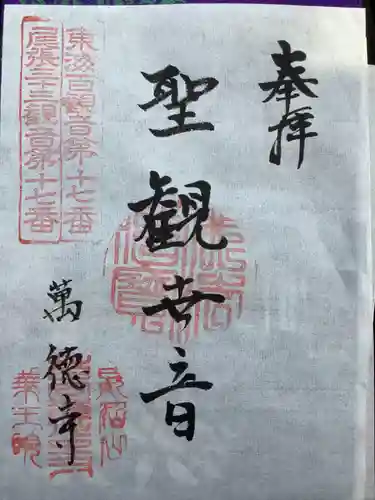 奉拝
聖観世音
萬徳寺
東海百觀音第十七番
尾張三十三觀音第十七番
長沼山